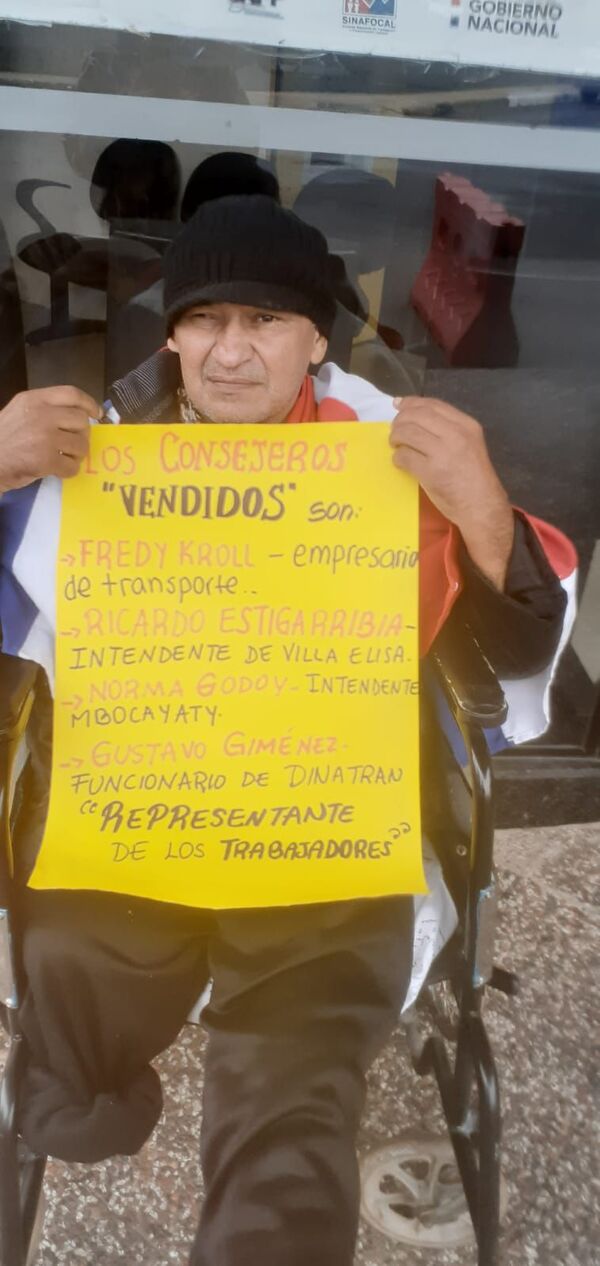 SINAFOCAL
GOBIERNO
NACIONAL
LOS CONSEJEROS
"VENDIDOS" son:
→FREDY KROLL - empresario
de transporte..
→RICARDO ESTIGARRIBIA-
INTENDENTE DE VILLA ELISA.
→NORMA GODOY- INTENDENTE
MBOCAYATY.
→GUSTAVO GIMÉNEZ-
FUNCIONARIO DE DINATRAN
"REPRESENTANTE
DE LOS TRABAJADORES"